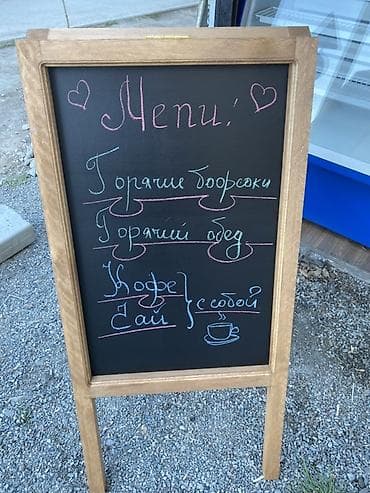 Мепи!
Горячие боорсоки
Горячий обед
Кофе
Чай
с собой